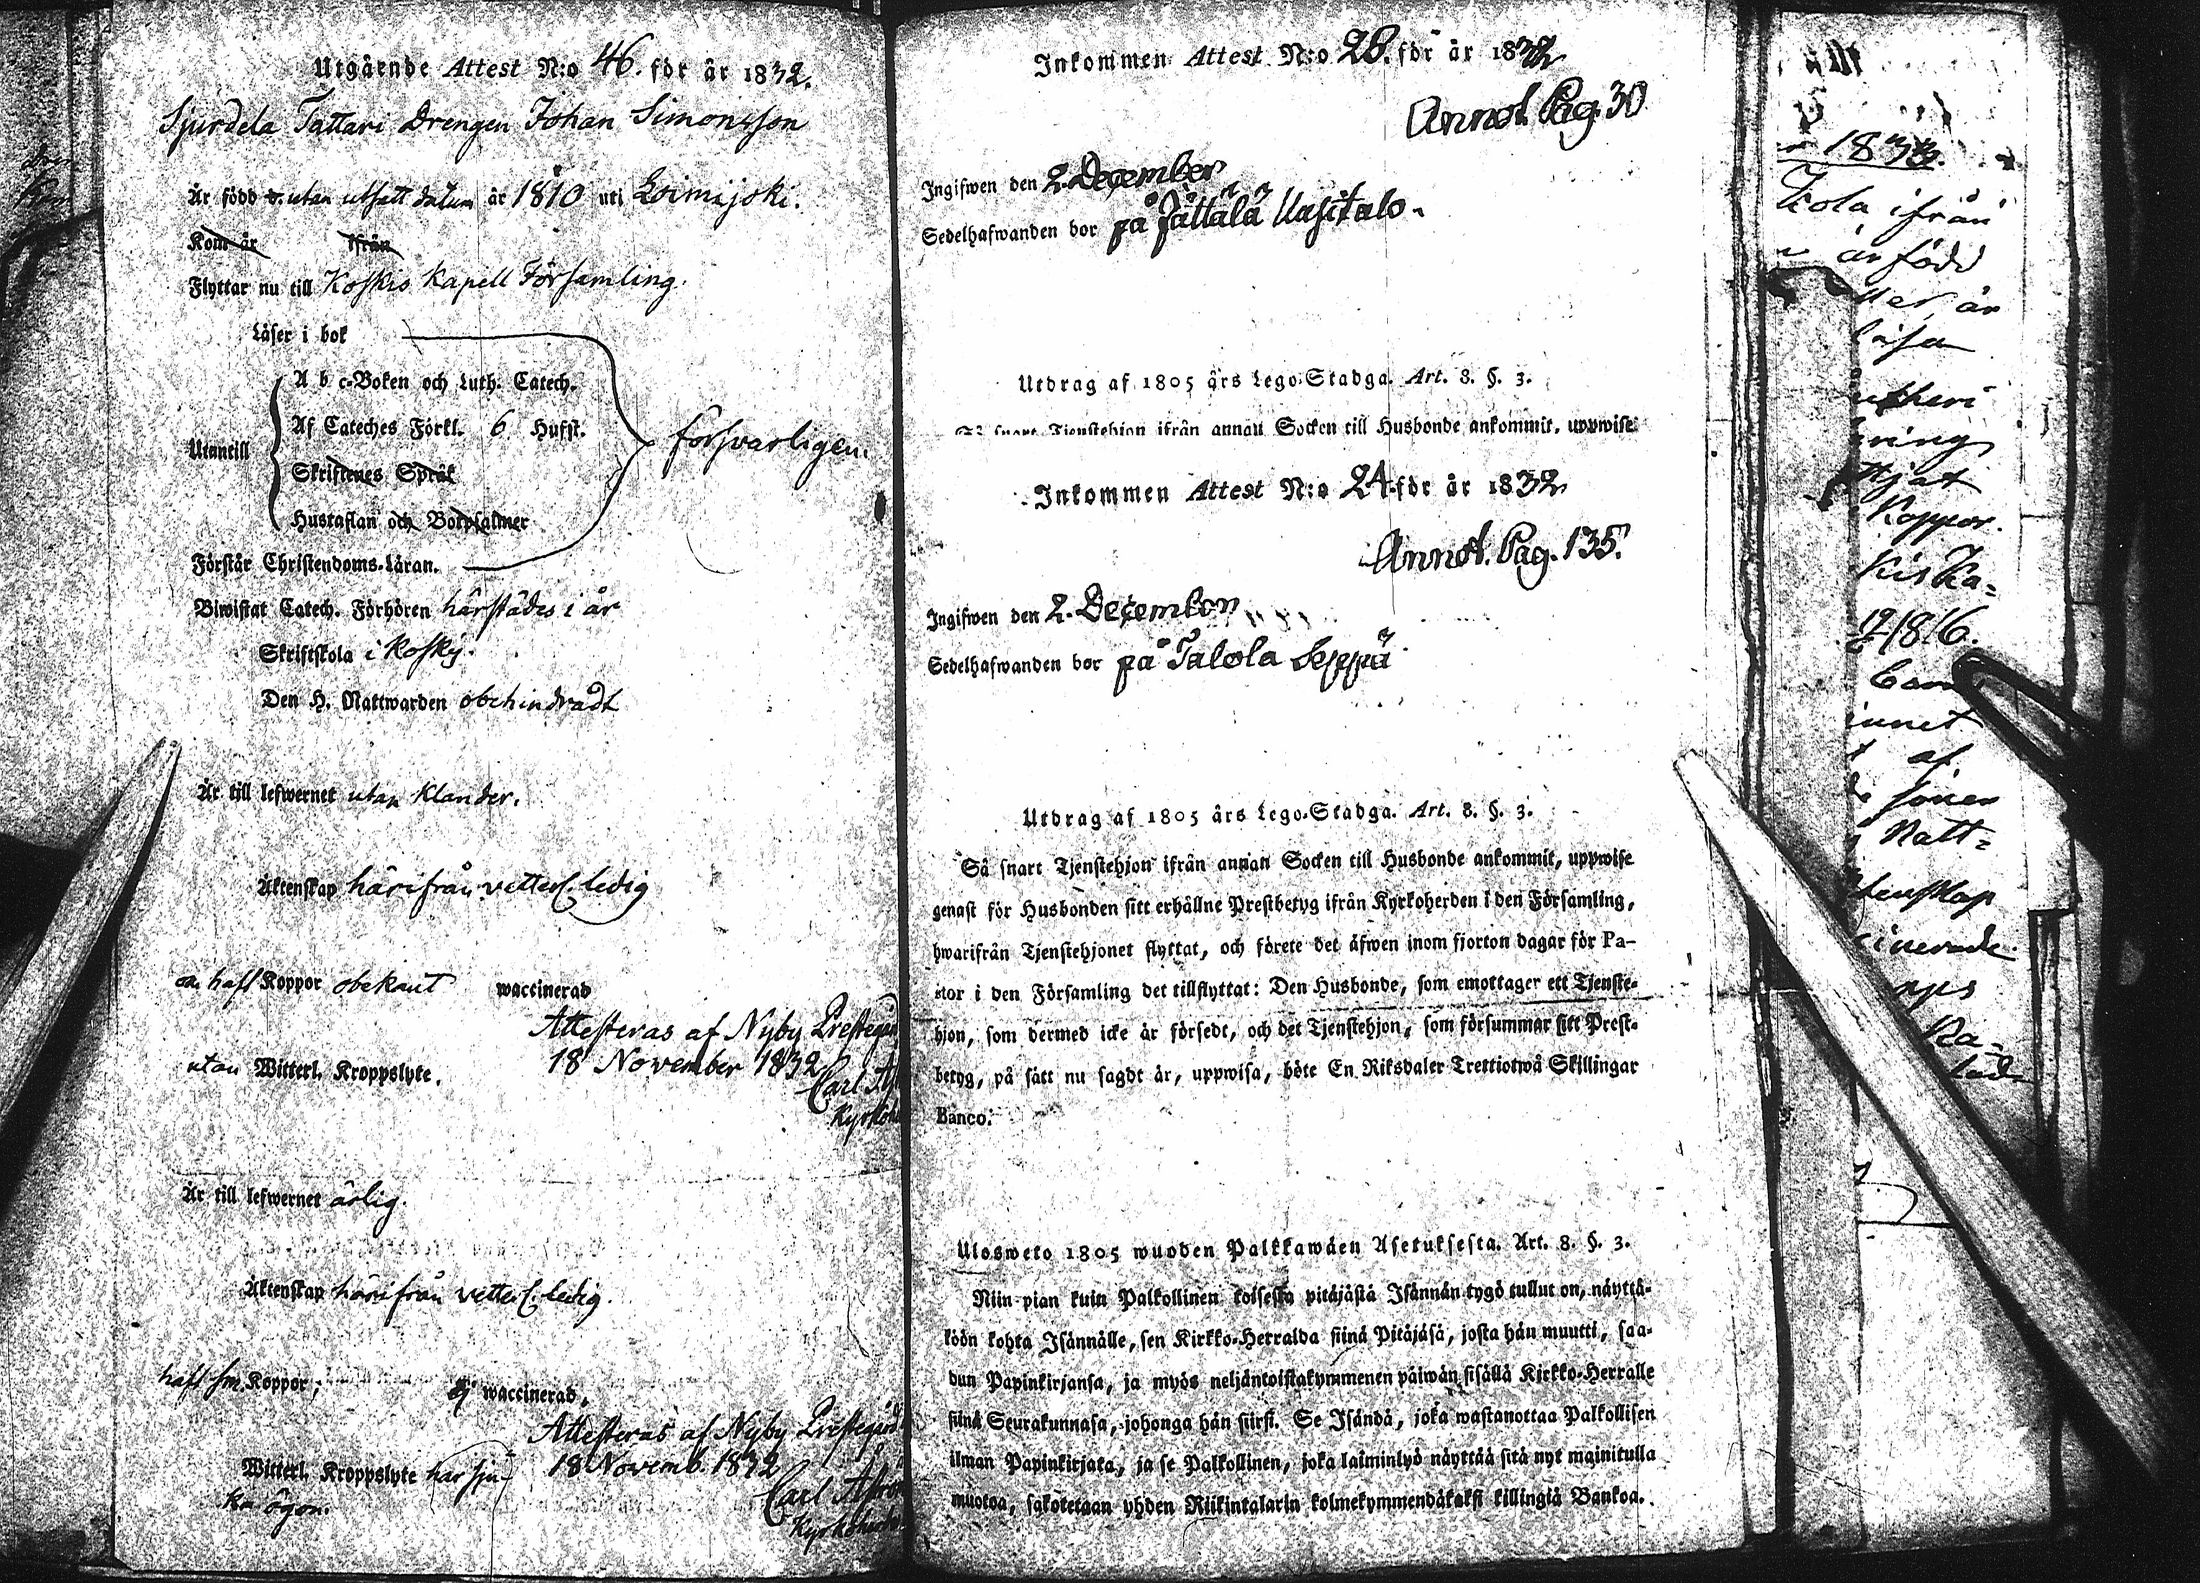 Utgående Attest N:o 46. för år 1832.
Sjurdela Tattari Drengen Johan Simonsson
Är född d. utan utsatt datum år 1810 uti Loimijoki.
Kom år ifrån
Flyttar nu till Koskis Kapell Församling.
Läser i bok
A b c-Boken och Luth. Catech.
Af Cateches Förkl. 6 Hufst.
Utantill
försvarligen.
Skriftenes Språk
Hustaflan och Botpsalmer
Förstår Christendoms-Läran.
Biwistat Catech. Förhören härstädes i år
Skriftskola i Koskis.
Den H. Nattwarden obehindradt
Är till lefwernet utan klander.
Äktenskap härifrån vetterl. ledig
om haft Koppor obekant waccinerad
Attesteras af Nyby Prestegård
18 November 1832
utan Witterl. Kroppslyte.
Carl
Är till lefwernet ärlig.
Äktenskap härifrån vetterl. ledig.
haft sm. Koppor; ej waccinerad.
Attesteras af Nyby Prestegård
18 Novemb. 1832
Witterl. Kroppslyte har sju-
ka ögon.
Carl
Inkommen Attest N:o 28. för år 1832
Annot. Pag. 30
Ingifwen den 2. December
Sedelhafwanden bor på Jättälä Uusitalo.
Utdrag af 1805 års Lego-Stadga. Art. 8. §. 3.
Så snart Tjenstehjon ifrån annan Socken till Husbonde ankommit, uppwise
Inkommen Attest N:o 24 för år 1832
Annot. Pag. 135.
Ingifwen den 2. December
Sedelhafwanden bor på Talola Seppä
Utdrag af 1805 års Lego-Stadga. Art. 8. §. 3.
Så snart Tjenstehjon ifrån annan Socken till Husbonde ankommit, uppwise
genast för Husbonden sitt erhållne Prestbetyg ifrån Kyrkoherden i den Församling,
hwarifrån Tjenstehjonet flyttat, och förete det äfwen inom fjorton dagar för Pa-
stor i den Församling det tillflyttat: Den Husbonde, som emottager ett Tjenste-
hjon, som dermed icke är försedt, och det Tjenstehjon, som försummar sitt Prest-
betyg, på sätt nu sagdt är, uppwisa, böte En Riksdaler Trettiotwå Skillingar
Banco.
Ulosweto 1805 wuoden Palkkawäen Asetuksesta. Art. 8. §. 3.
Niin pian kuin Palkollinen toisesta pitäjästä Isännän tygö tullut on, näyttä-
köön kohta Isännälle, sen Kirkko-Herralda siinä Pitäjäsä, josta hän muutti, saa-
dun Papinkirjansa, ja myös neljäntoistakymmenen päiwän sisällä Kirkko-Herralle
siinä Seurakunnasa, johonga hän siirsi. Se Isändä, joka wastanottaa Palkollisen
ilman Papinkirjata, ja se Palkollinen, joka laiminlyö näyttää sitä nyt mainitulla
muotoa, sakotetaan yhden Riikintalarin kolmekymmendäkaksi killingiä Bankoa.
1833.
ifrån
är född
år
Koppor.
Kis Ka-
1816.
af
Natt-